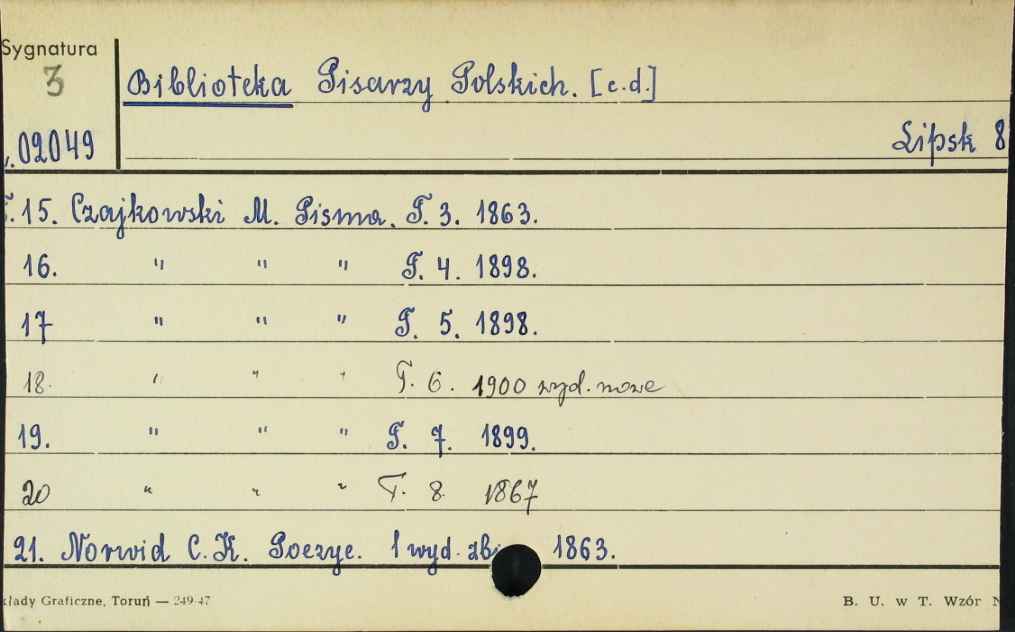 Sygnatura
3
02049
Biblioteka Pisarzy Polskich. [c.d.]
Lipsk 8
T. 15. Czajkowski M. Pisma. T. 3. 1863.
16. " " " T. 4. 1898.
17 " " " T. 5. 1898.
18. " " " T. 6. 1900 wyd. nowe
19. " " " T. 7. 1899.
20 " " " T. 8. 1867
21. Norwid C. K. Poezye. 1 wyd. zbi 1863.
kłady Graficzne, Toruń — 249-47
B. U. w T. Wzór N